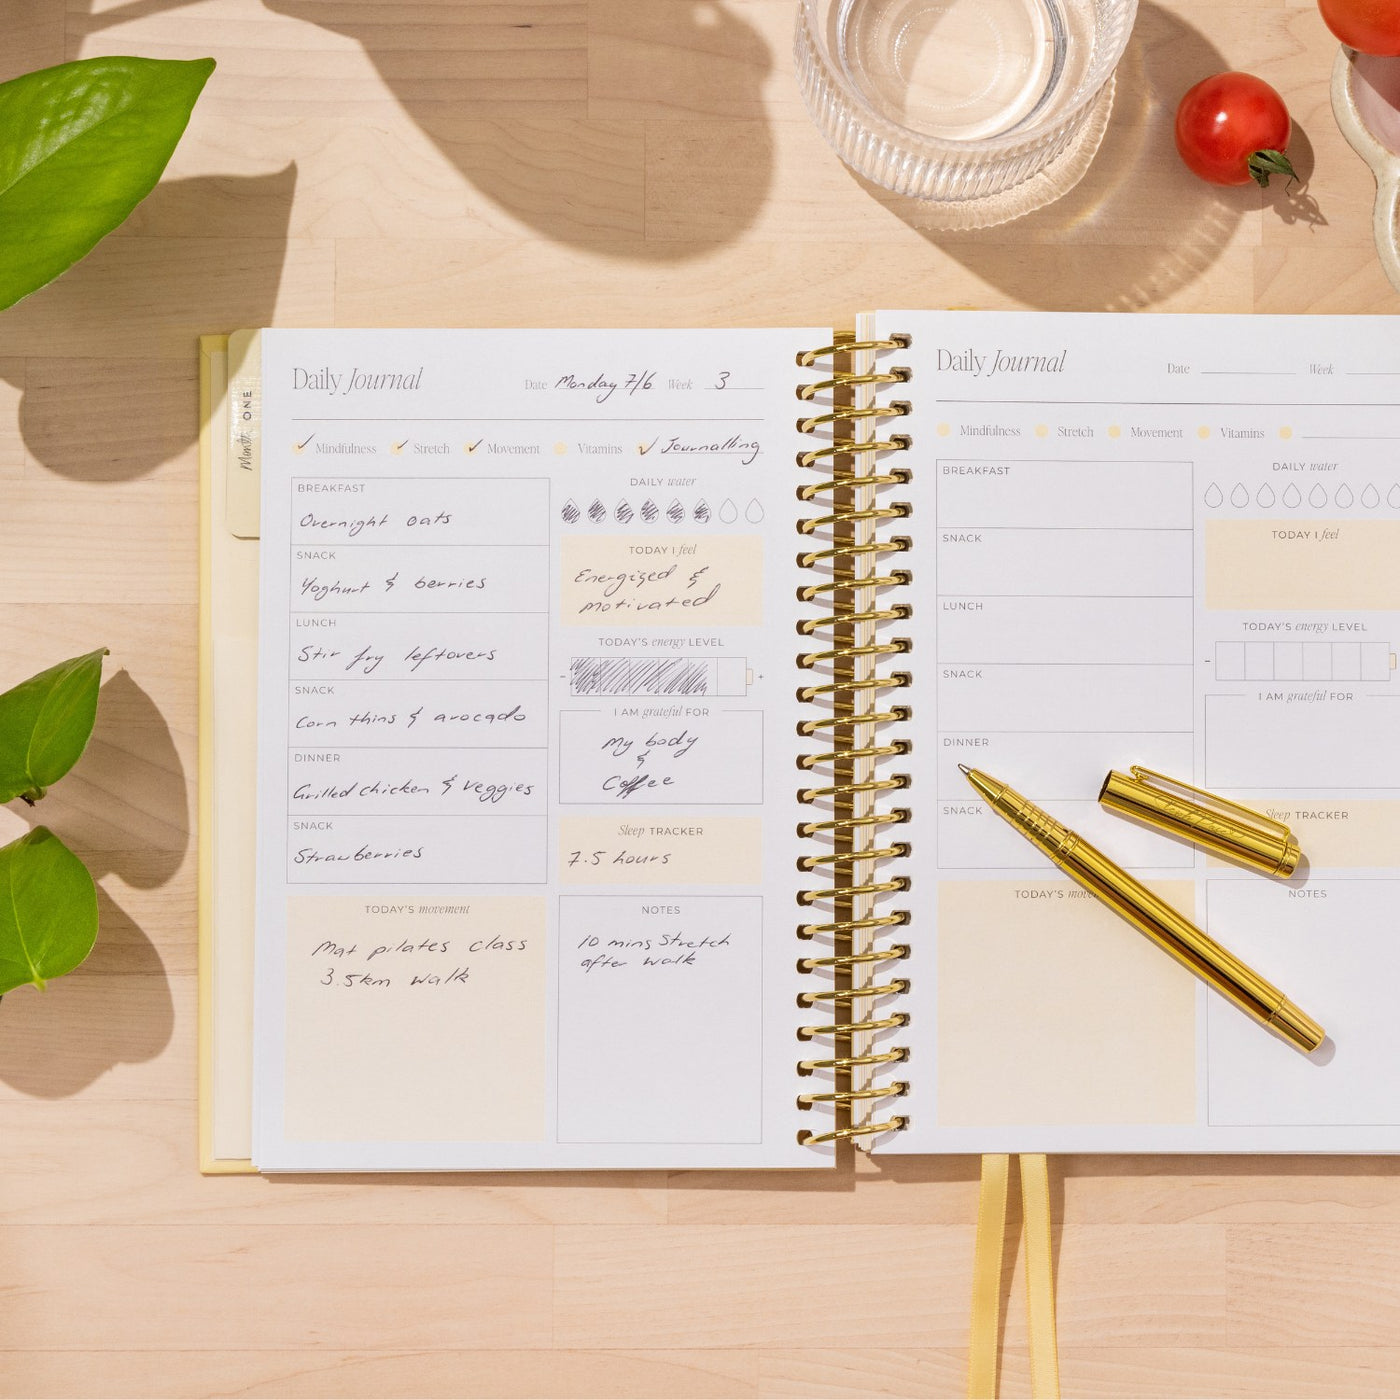 Month ONE
Daily Journal
Date Monday 7/6 Week 3
Mindfulness Stretch Movement Vitamins Journalling
BREAKFAST
Overnight oats
SNACK
Yoghurt & berries
LUNCH
Stir fry leftovers
SNACK
Corn thins & avocado
DINNER
Grilled chicken & veggies
SNACK
Strawberries
DAILY water
TODAY I feel
Energized &
motivated
TODAY'S energy LEVEL
- +
I AM grateful FOR
My body
&
Coffee
Sleep TRACKER
7.5 hours
TODAY'S movement
Mat pilates class
3.5km walk
NOTES
10 mins stretch
after walk
Daily Journal
Date Week
Mindfulness Stretch Movement Vitamins
BREAKFAST
SNACK
LUNCH
SNACK
DINNER
SNACK
DAILY water
TODAY I feel
TODAY'S energy LEVEL
-
I AM grateful FOR
Sleep TRACKER
TODAY'S
NOTES